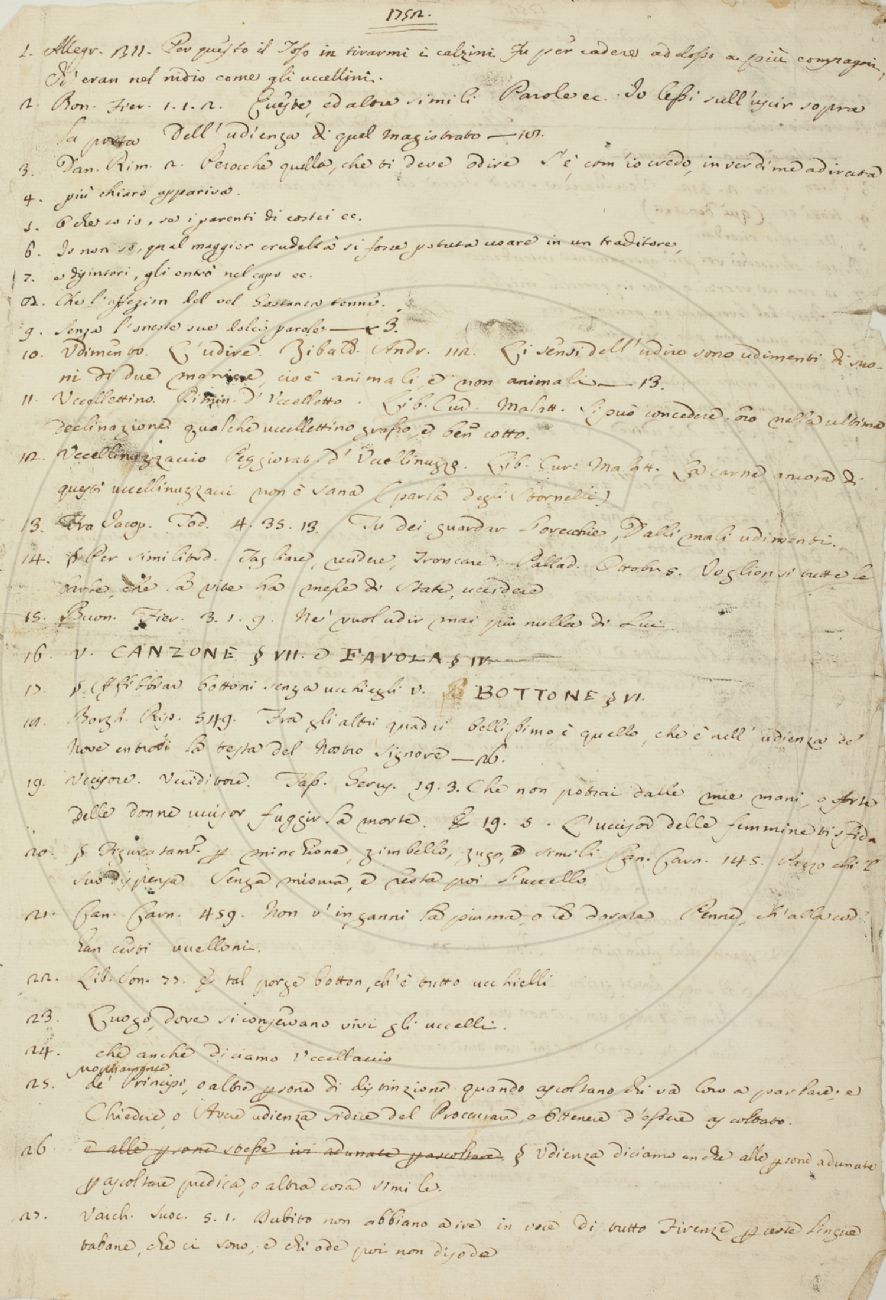 1752.
1. Allegr. 311. Per questo il Toso in tirarmi i calzini Fu per cadere addosso a più compagni,
Ch' eran nel nidio come gli uccellini.
2. Buon. Fier. 1. 1. 2. Queste, ed altre simili Parole ec. Io lessi sull' uscir sopra
la porta Dell' udienza di quel magistrato — 12.
3. Dan. Rim. 2. Perocchè quella, che ti deve odire S' è, com' io credo, in ver di me adirata
4. più chiaro appariva.
5. io, se i parenti di costei ec.
6. Io non so, qual maggior crudeltà si fosse potuta usare in un traditore,
7. e digintori, gli entrò nel capo ec.
8. Che l' affezion del vel Costanza tenne.
9. Senza l' oneste sue dolci parole — 3.
10. Udimento. L' udire. Zibald. Andr. 112. Li sensi dell' udire sono udimenti di suo-
ni di due maniere, cioè animali, e non animali — 13.
11. Uccellettino. Dimin. d' Uccelletto. Lib. Cur. Malatt. Si può concedere loro nell' ultima
declinazione qualche uccellettino grasso, e ben cotto.
12. Uccellinuzzaccio Peggiorat. d' Uccellinuzzo. Lib. Cur. Malatt. La carne ancora di
questi uccellinuzzacci non è sana (parla degli Stornelli)
13. Fra Jacop. Tod. 4. 35. 13. Tu dei guardar l' orecchie, Dalli mali udimenti.
14. § Per similitud. Tagliare, recidere, Troncare. Pallad. Ottobr. 5. Voglionsi tutte le
barbe, che la vite ha messe di State, uccidere
15. Buon. Fier. 3. 1. 9. Nè vuol udir mai più nulla di Lui.
16. V. CANZONE § VII. e FAVOLA § IV.
17. § Affibbiar bottoni senza ucchiegli v. BOTTONE § VI.
18. Borgh. Rip. 519. Fra gli altri quadri bellissimo è quello, che è nell' udienza de'
Nove entrovi la testa del Nostro Signore — 26.
19. Uccisore. Ucciditore. Tass. Gerus. 19. 3. Che non potrai dalle mie mani, o forte
delle donne uccisor fuggir la morte. E 19. 5. L' uccisor delle femmine ti sfida
20. § Figuratam. per minchione, zimbello, zugo, e simili Can. Carn. 145. Pazzo chi 'l
suo dispensa Senza misura, e resta poi l' uccello
21. Can. Carn. 459. Non v' inganni la piuma, o le dorate Penne, ch' alla cod'
han certi uccelloni.
22. Lib. Son. 77. E tal porge botton, ch' è tutto ucchielli
23. Luogo, dove si conservano vivi gli uccelli.
24. che anche diciamo Uccellaccio
propriamente
25. de' Principi, o altre persone di distinzione quando ascoltano chi va loro a parlare; e
Chiedere, o Avere udienza si dice del Procurare, o Ottenere d' essere ascoltato.
26. e alle persone stesse ivi adunate per ascoltare. § Udienza diciamo anche alle persone adunate
per ascoltare predica, o altra cosa simile.
27. Varch. Suoc. 5. 1. Dubito non abbiano a ire in voce di tutto Firenze per coteste lingue
tabane, che ci sono, e chi ode poi non disode